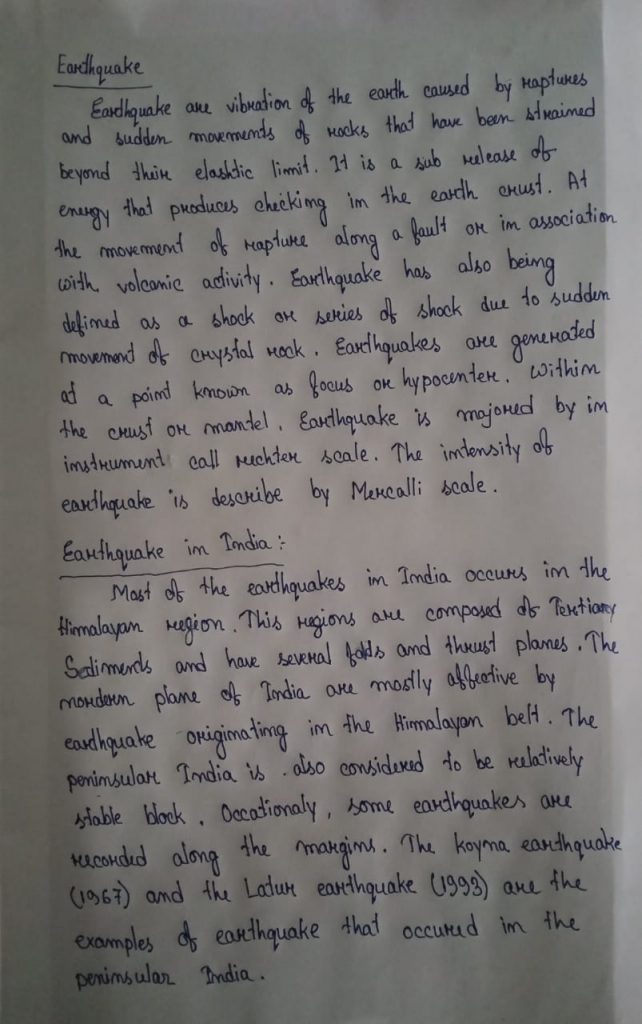 Earthquake
Earthquake are vibration of the earth caused by raptures
and sudden movements of rocks that have been strained
beyond their elashtic limit. It is a sub release of
energy that produces checking in the earth crust. At
the movement of rapture along a fault or in association
with volcanic activity. Earthquake has also being
defined as a shock or series of shock due to sudden
movement of crystal rock. Earthquakes are generated
at a point known as focus or hypocenter. Within
the crust or mantel. Earthquake is majored by in
instrument call rechter scale. The intensity of
earthquake is describe by Mercalli scale.
Earthquake in India :-
Most of the earthquakes in India occurs in the
Himalayan region. This regions are composed of Tertiary
Sediments and have several folds and thrust planes. The
mordern plane of India are mostly affective by
earthquake originating in the Himalayan belt. The
peninsular India is also considered to be relatively
stable block. Occationaly, some earthquakes are
recorded along the margins. The Koyna earthquake
(1967) and the Latur earthquake (1993) are the
examples of earthquake that occured in the
peninsular India.